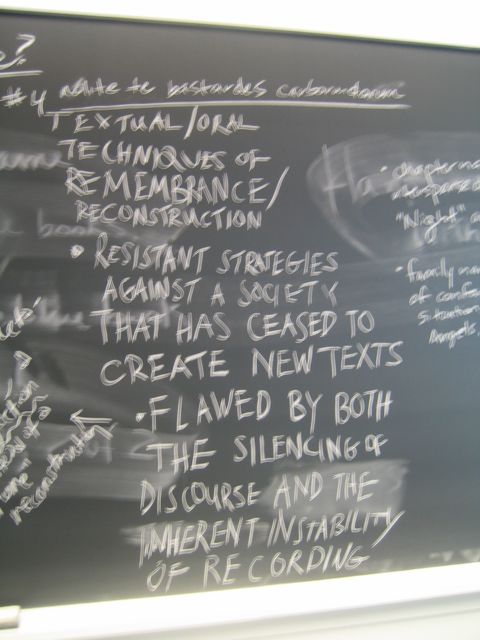 e?
#4 nolite te bastardes carborundorum
TEXTUAL/ORAL
TECHNIQUES OF
REMEMBRANCE/
RECONSTRUCTION
• RESISTANT STRATEGIES
AGAINST A SOCIETY
THAT HAS CEASED TO
CREATE NEW TEXTS
• FLAWED BY BOTH
THE SILENCING OF
DISCOURSE AND THE
INHERENT INSTABILITY
OF RECORDING
of a
reconstruction
"Night"
• family
of
situation